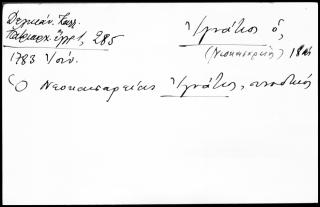 Δελικάν. Καλλ.
Πατριαρχ. Ἔγγρ. 1, 285
1783 Ἰούν.
Ἰγνάτιος ὁ,
(Νεοκαισαρείας) 18
Ὁ Νεοκαισαρείας Ἰγνάτιος, συνοδικός